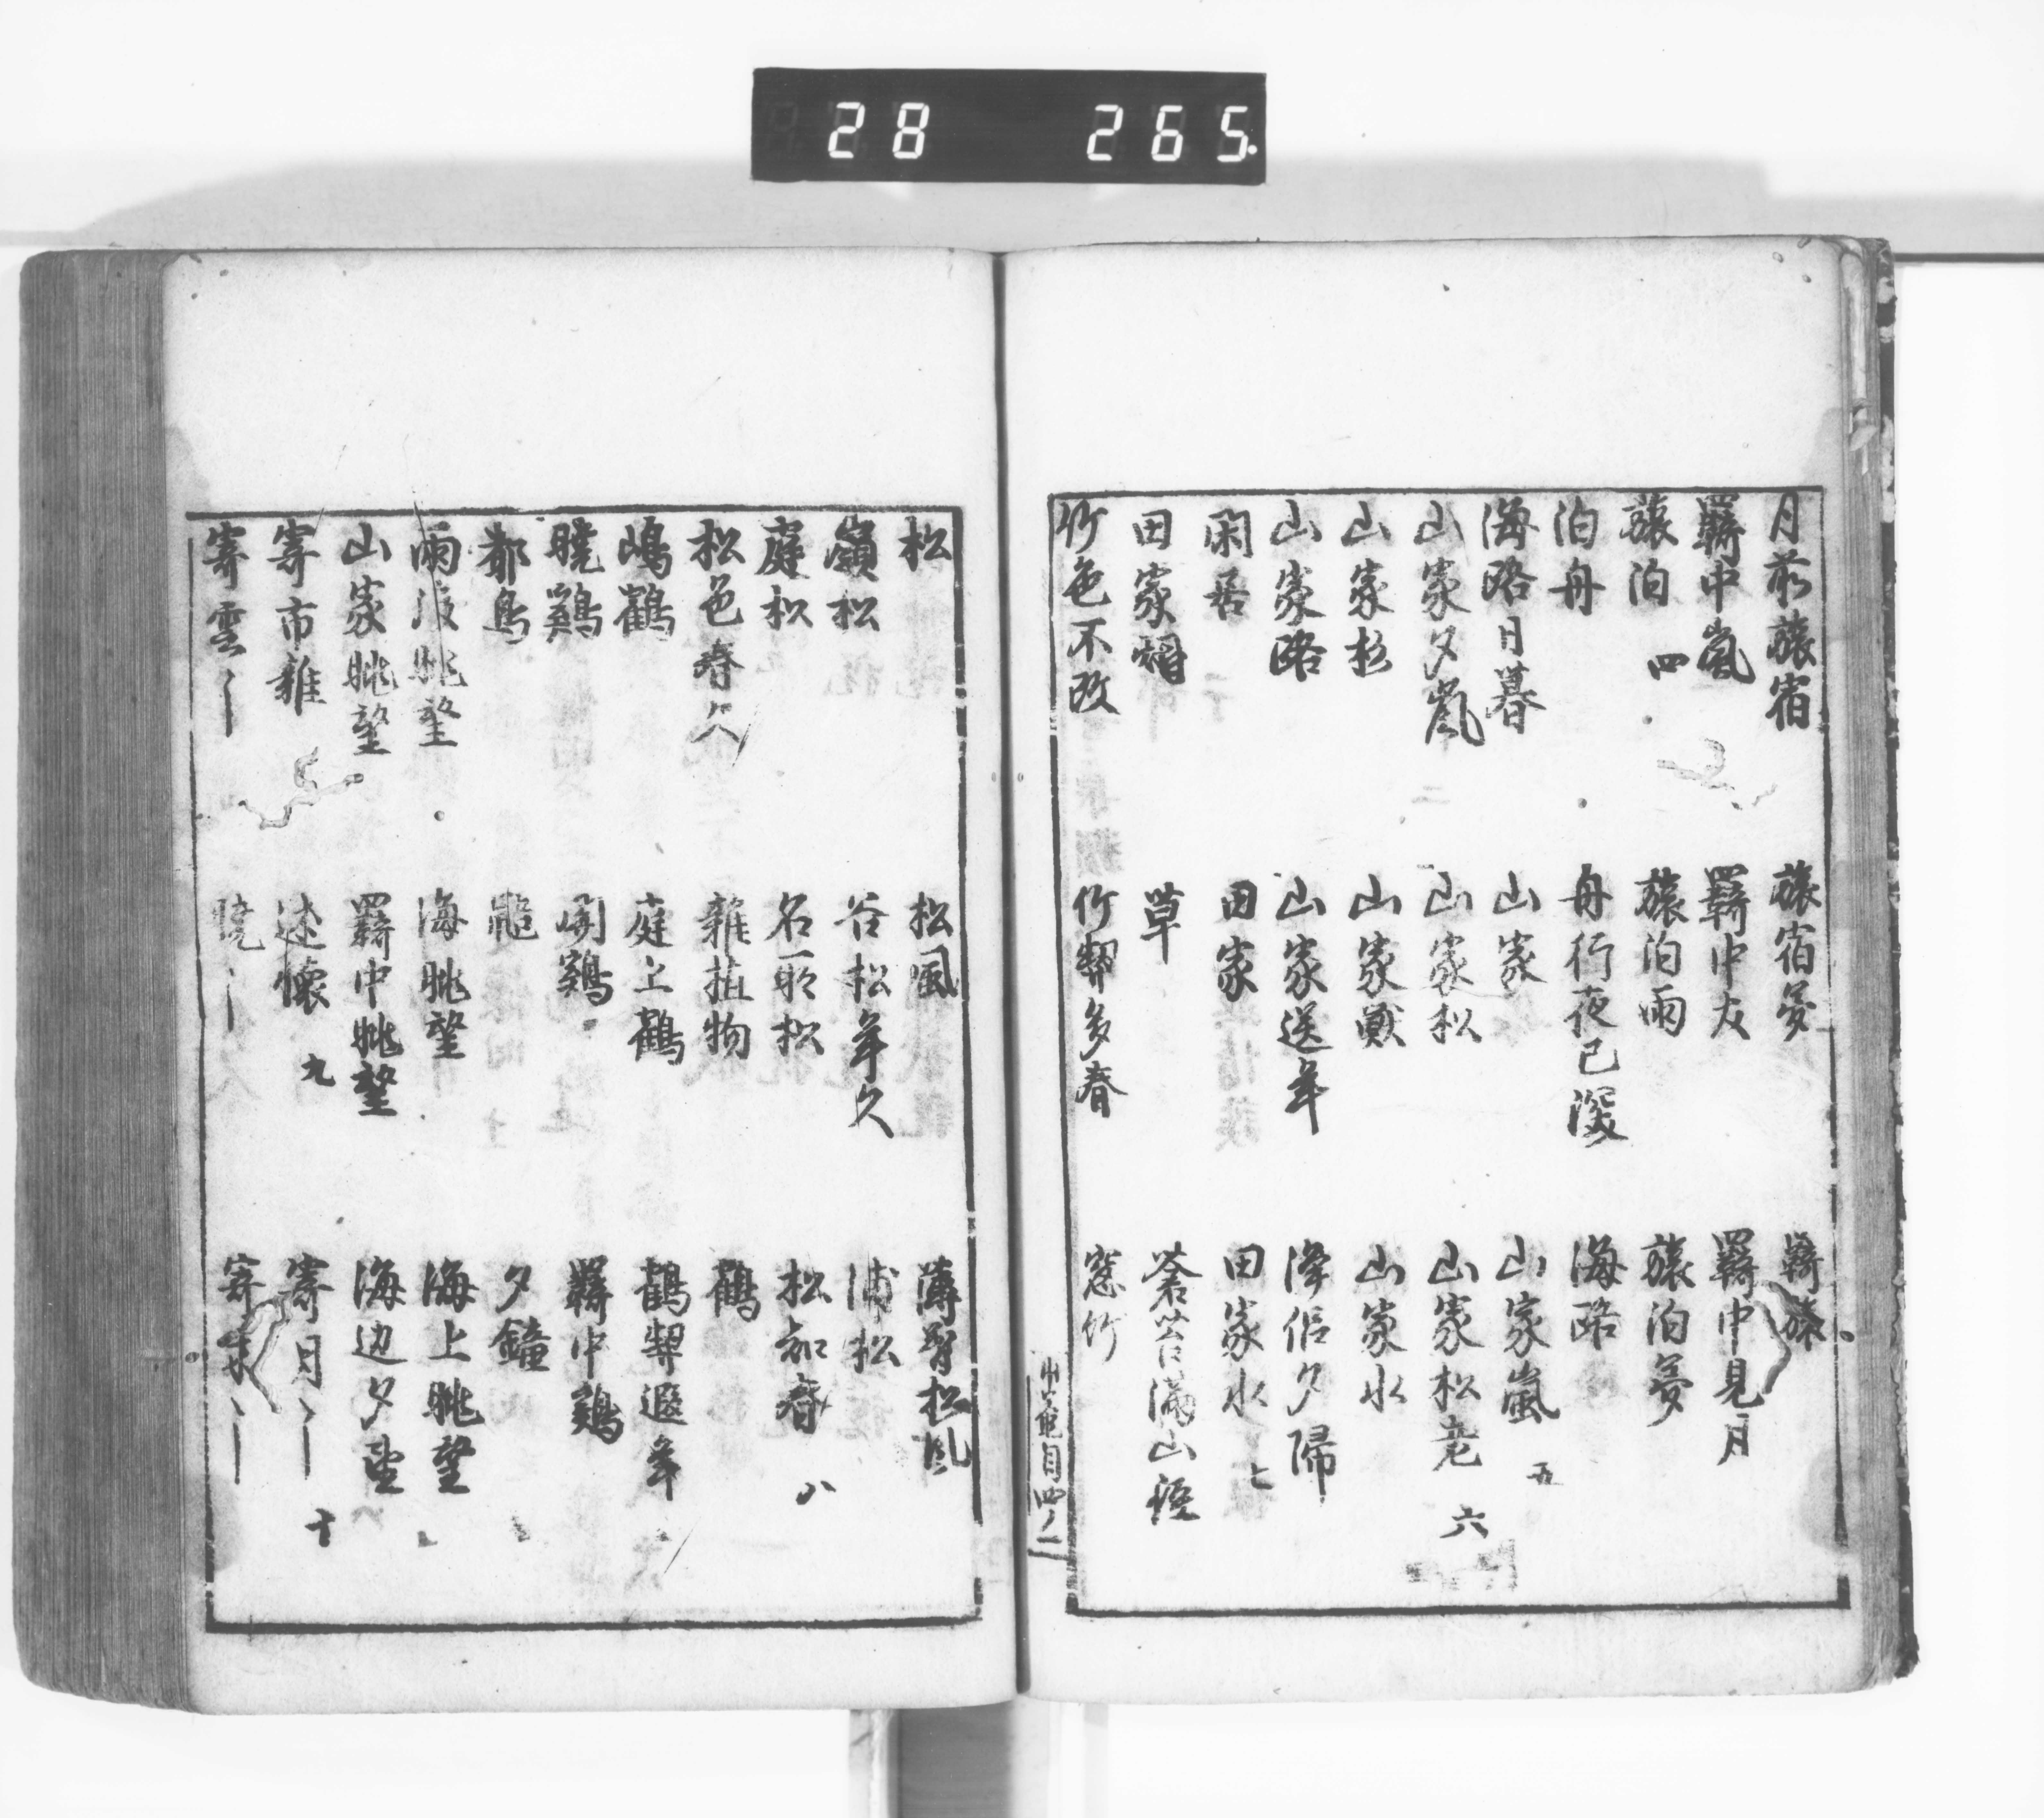 28 265.
月前旅宿 旅宿夢 羇旅
羇中嵐 羇中友 羇中見月
旅泊 四 旅泊雨 旅泊夢
泊舟 舟行夜已深 海路
海路日暮 山家 山家嵐 五
山家夕嵐 山家松 山家松老 六
山家杉 山家獣 山家水
山家路 山家送年 澤侶夕帰
閑居 田家 田家水 七
田家烟 草 蒼苔満山径
竹色不改 竹契多春 窓竹
目四ノ二
松 松風 薄暮松風
嶺松 谷松年久 浦松
庭松 名所松 松知春 八
松色春久 雜植物 鶴
嶋鶴 庭上鶴 鶴契遐年
曉鷄 関鷄 羇中鷄
都鳥 龍 夕鐘
雨後眺望 海眺望 海上眺望
山家眺望 羇中眺望 海辺夕望
寄市雜 述懐 九 寄月〻ー 十
寄雲〻ー 曉〻ー 寄〻ー